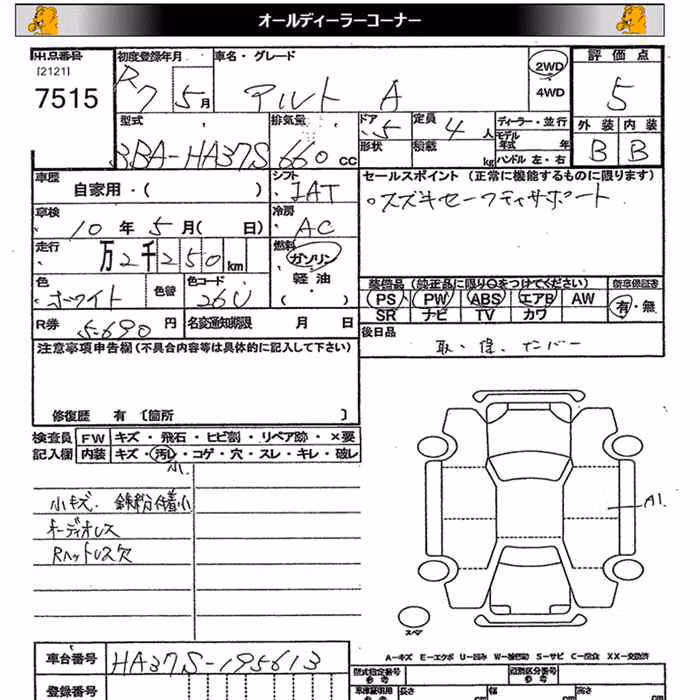 オールディーラーコーナー
出品番号 初度登録年月 車名・グレード 評価点
[2121]
7515
R7 5月 アルト A 2WD 5
4WD
型式 排気量 ドア 定員 ディーラー・並行 外装 内装
3BA-HA37S 660cc 5 4人 モデル年式 年 B B
形状 積載 kg ハンドル 左・右
車歴 シフト セールスポイント(正常に機能するものに限ります)
自家用・( IAT 。スズキセーフティサポート
車検 冷房
10年5月( 日) AC
走行 燃料
万2千250km ガソリン
軽油
( )
色 色替 色コード 装備品(純正品に限り○をつけてください) 新車保証書
ホワイト 26U PS PW ABS エアB AW 有・無
SR ナビ TV カワ
R券 5690円 名変通知期限 月 日 後日品
取・保・ナンバー
注意事項申告欄(不具合内容等は具体的に記入して下さい)
修復歴 有〔箇所 〕
検査員 FW キズ・飛石・ヒビ割・リペア跡・×要
記入欄 内装 キズ・汚レ・コゲ・穴・スレ・キレ・破レ
小
小キズ. 鉄粉付着小
オーディオレス
Rヘットレス欠
A1
スペア
A-キズ E-エクボ U-凹み W-補修跡 S-サビ C-腐食 XX-交換済
車台番号 HA37S-195613
型式指定番号 参考 類別区分番号 参考
登録番号
車庫証明用 参考 長さ cm 幅 cm 高さ cm